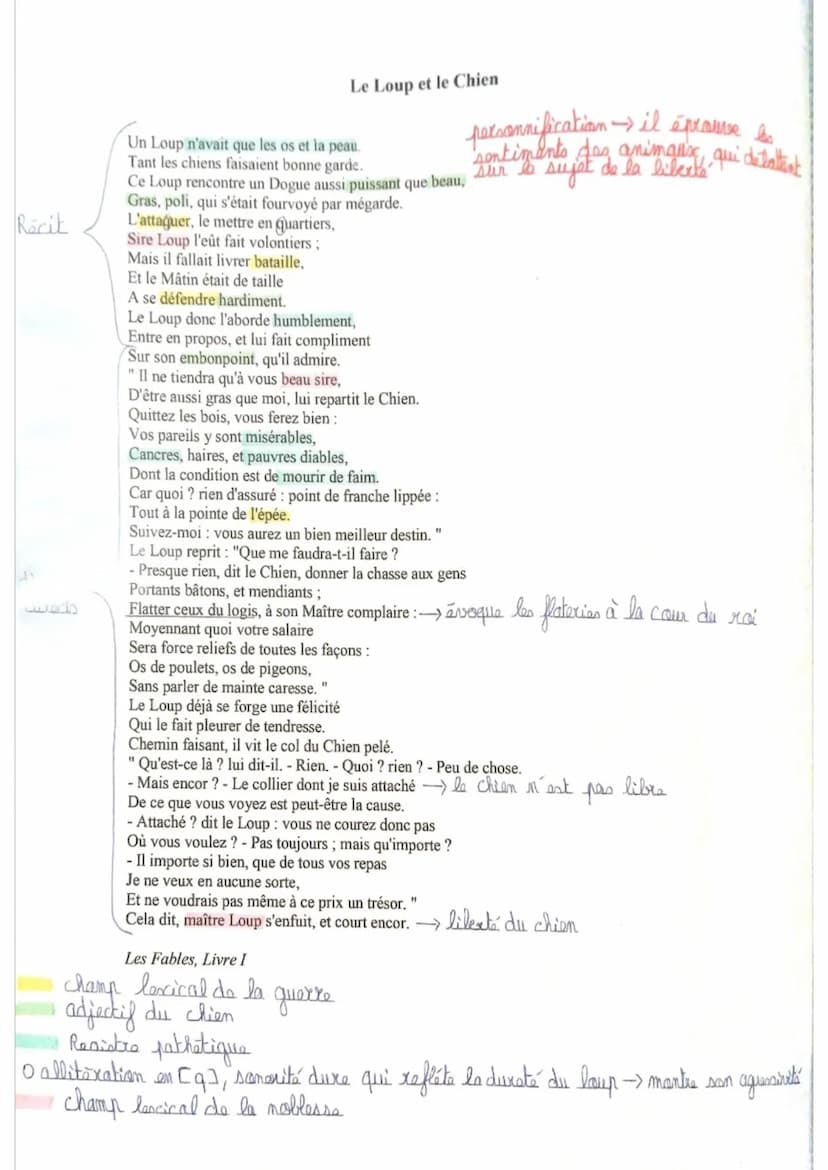 Le Loup et le Chien
personnification → il éprouve les
sentiments des animaux, qui débattent
sur le sujet de la liberté
Un Loup n'avait que les os et la peau.
Tant les chiens faisaient bonne garde.
Ce Loup rencontre un Dogue aussi puissant que beau,
Gras, poli, qui s'était fourvoyé par mégarde.
Récit
L'attaquer, le mettre en quartiers,
Sire Loup l'eût fait volontiers ;
Mais il fallait livrer bataille,
Et le Mâtin était de taille
A se défendre hardiment.
Le Loup donc l'aborde humblement,
Entre en propos, et lui fait compliment
Sur son embonpoint, qu'il admire.
" Il ne tiendra qu'à vous beau sire,
D'être aussi gras que moi, lui repartit le Chien.
Quittez les bois, vous ferez bien :
Vos pareils y sont misérables,
Cancres, haires, et pauvres diables,
Dont la condition est de mourir de faim.
Car quoi ? rien d'assuré : point de franche lippée :
Tout à la pointe de l'épée.
Suivez-moi : vous aurez un bien meilleur destin. "
Le Loup reprit : "Que me faudra-t-il faire ?
- Presque rien, dit le Chien, donner la chasse aux gens
Portants bâtons, et mendiants ;
Flatter ceux du logis, à son Maître complaire : → évoque les flateries à la cour du roi
Moyennant quoi votre salaire
Sera force reliefs de toutes les façons :
Os de poulets, os de pigeons,
Sans parler de mainte caresse. "
Le Loup déjà se forge une félicité
Qui le fait pleurer de tendresse.
Chemin faisant, il vit le col du Chien pelé.
" Qu'est-ce là ? lui dit-il. - Rien. - Quoi ? rien ? - Peu de chose.
- Mais encor ? - Le collier dont je suis attaché → le chien n'est pas libre
De ce que vous voyez est peut-être la cause.
- Attaché ? dit le Loup : vous ne courez donc pas
Où vous voulez ? - Pas toujours ; mais qu'importe ?
- Il importe si bien, que de tous vos repas
Je ne veux en aucune sorte,
Et ne voudrais pas même à ce prix un trésor. "
Cela dit, maître Loup s'enfuit, et court encor. → liberté du chien
Les Fables, Livre I
champ lexical de la guerre
adjectif du chien
Registre pathétique
O allitération en [q], sonorité dure qui reflète la dureté du loup → montre son agressivité
champ lexical de la noblesse